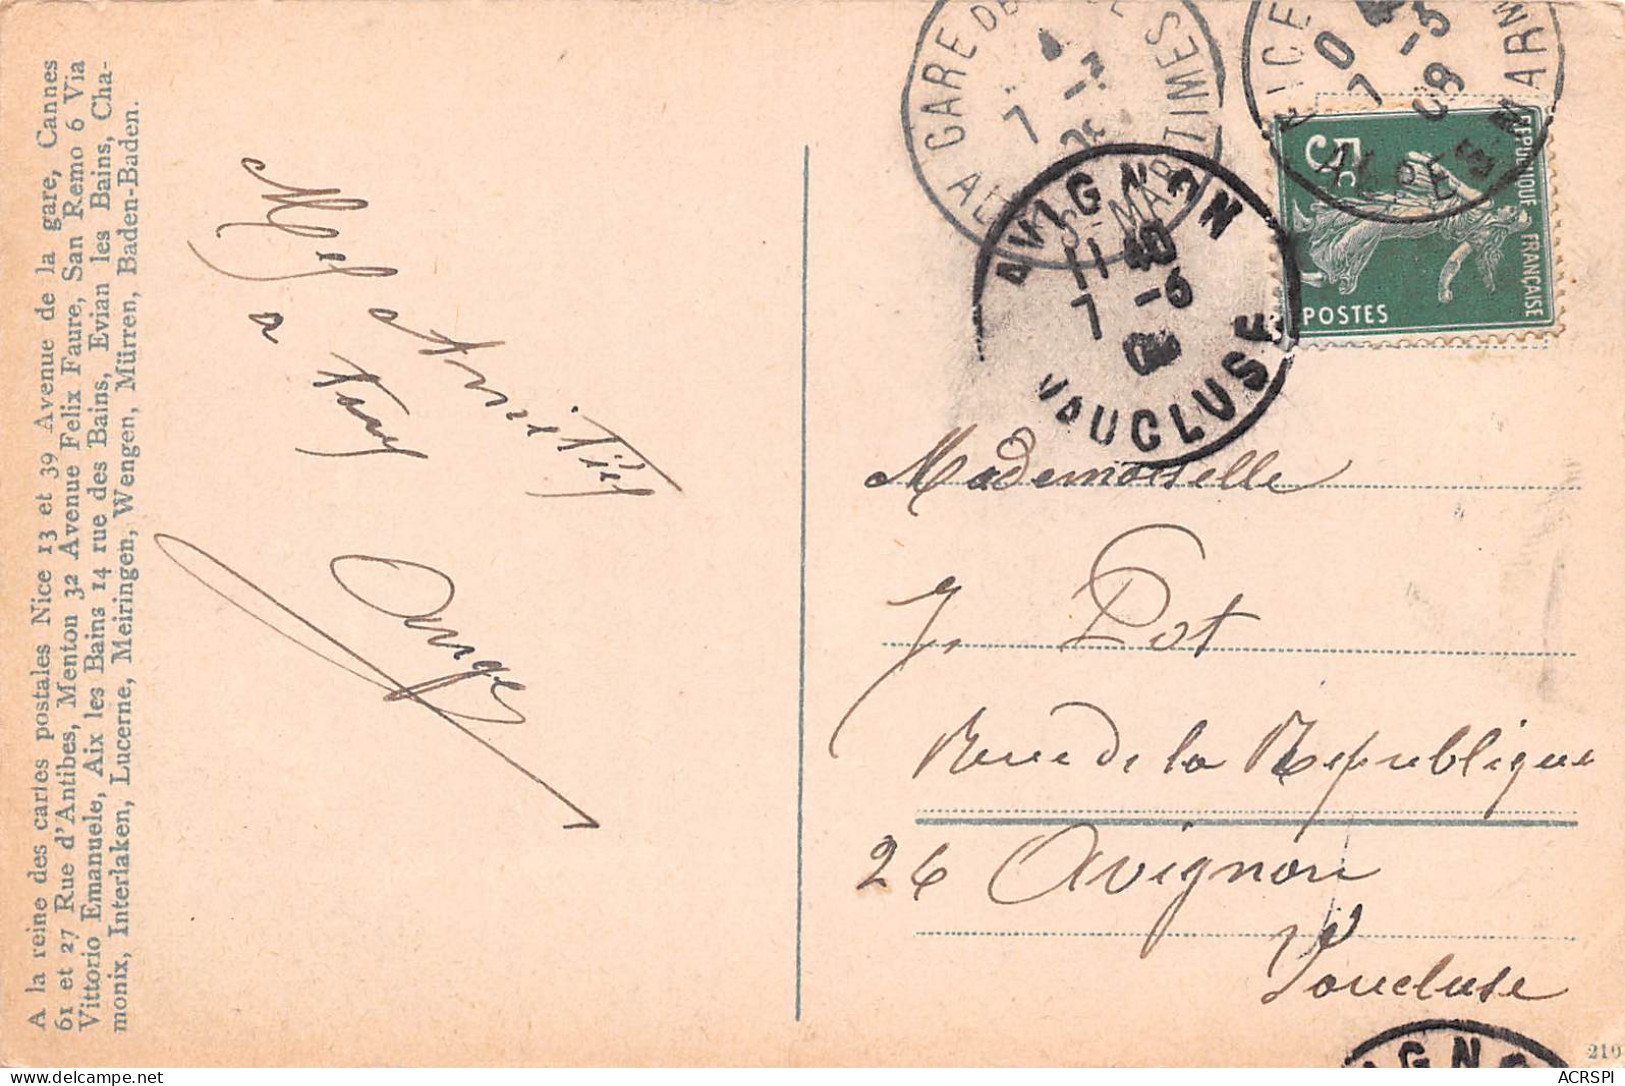 A la reine des cartes postales Nice 13 et 39 Avenue de la gare, Cannes
61 et 27 Rue d'Antibes, Menton 32 Avenue Felix Faure, San Remo 6 Via
Vittorio Emanuele, Aix les Bains 14 rue des Bains, Evian les Bains, Cha-
monix, Interlaken, Lucerne, Meiringen, Wengen, Mürren, Baden-Baden.
Amitiés
a
Ange
GARE DE
MARITIMES
7 -3
NICE
ALPES MAR
7 -3
08
AVIGNON
11
7 -3
VAUCLUSE
5c
REPUBLIQUE FRANÇAISE
POSTES
Mademoiselle
J. Pot
Rue de la Republique
26 Avignon
Vaucluse
IGNO
210
ACRSPI